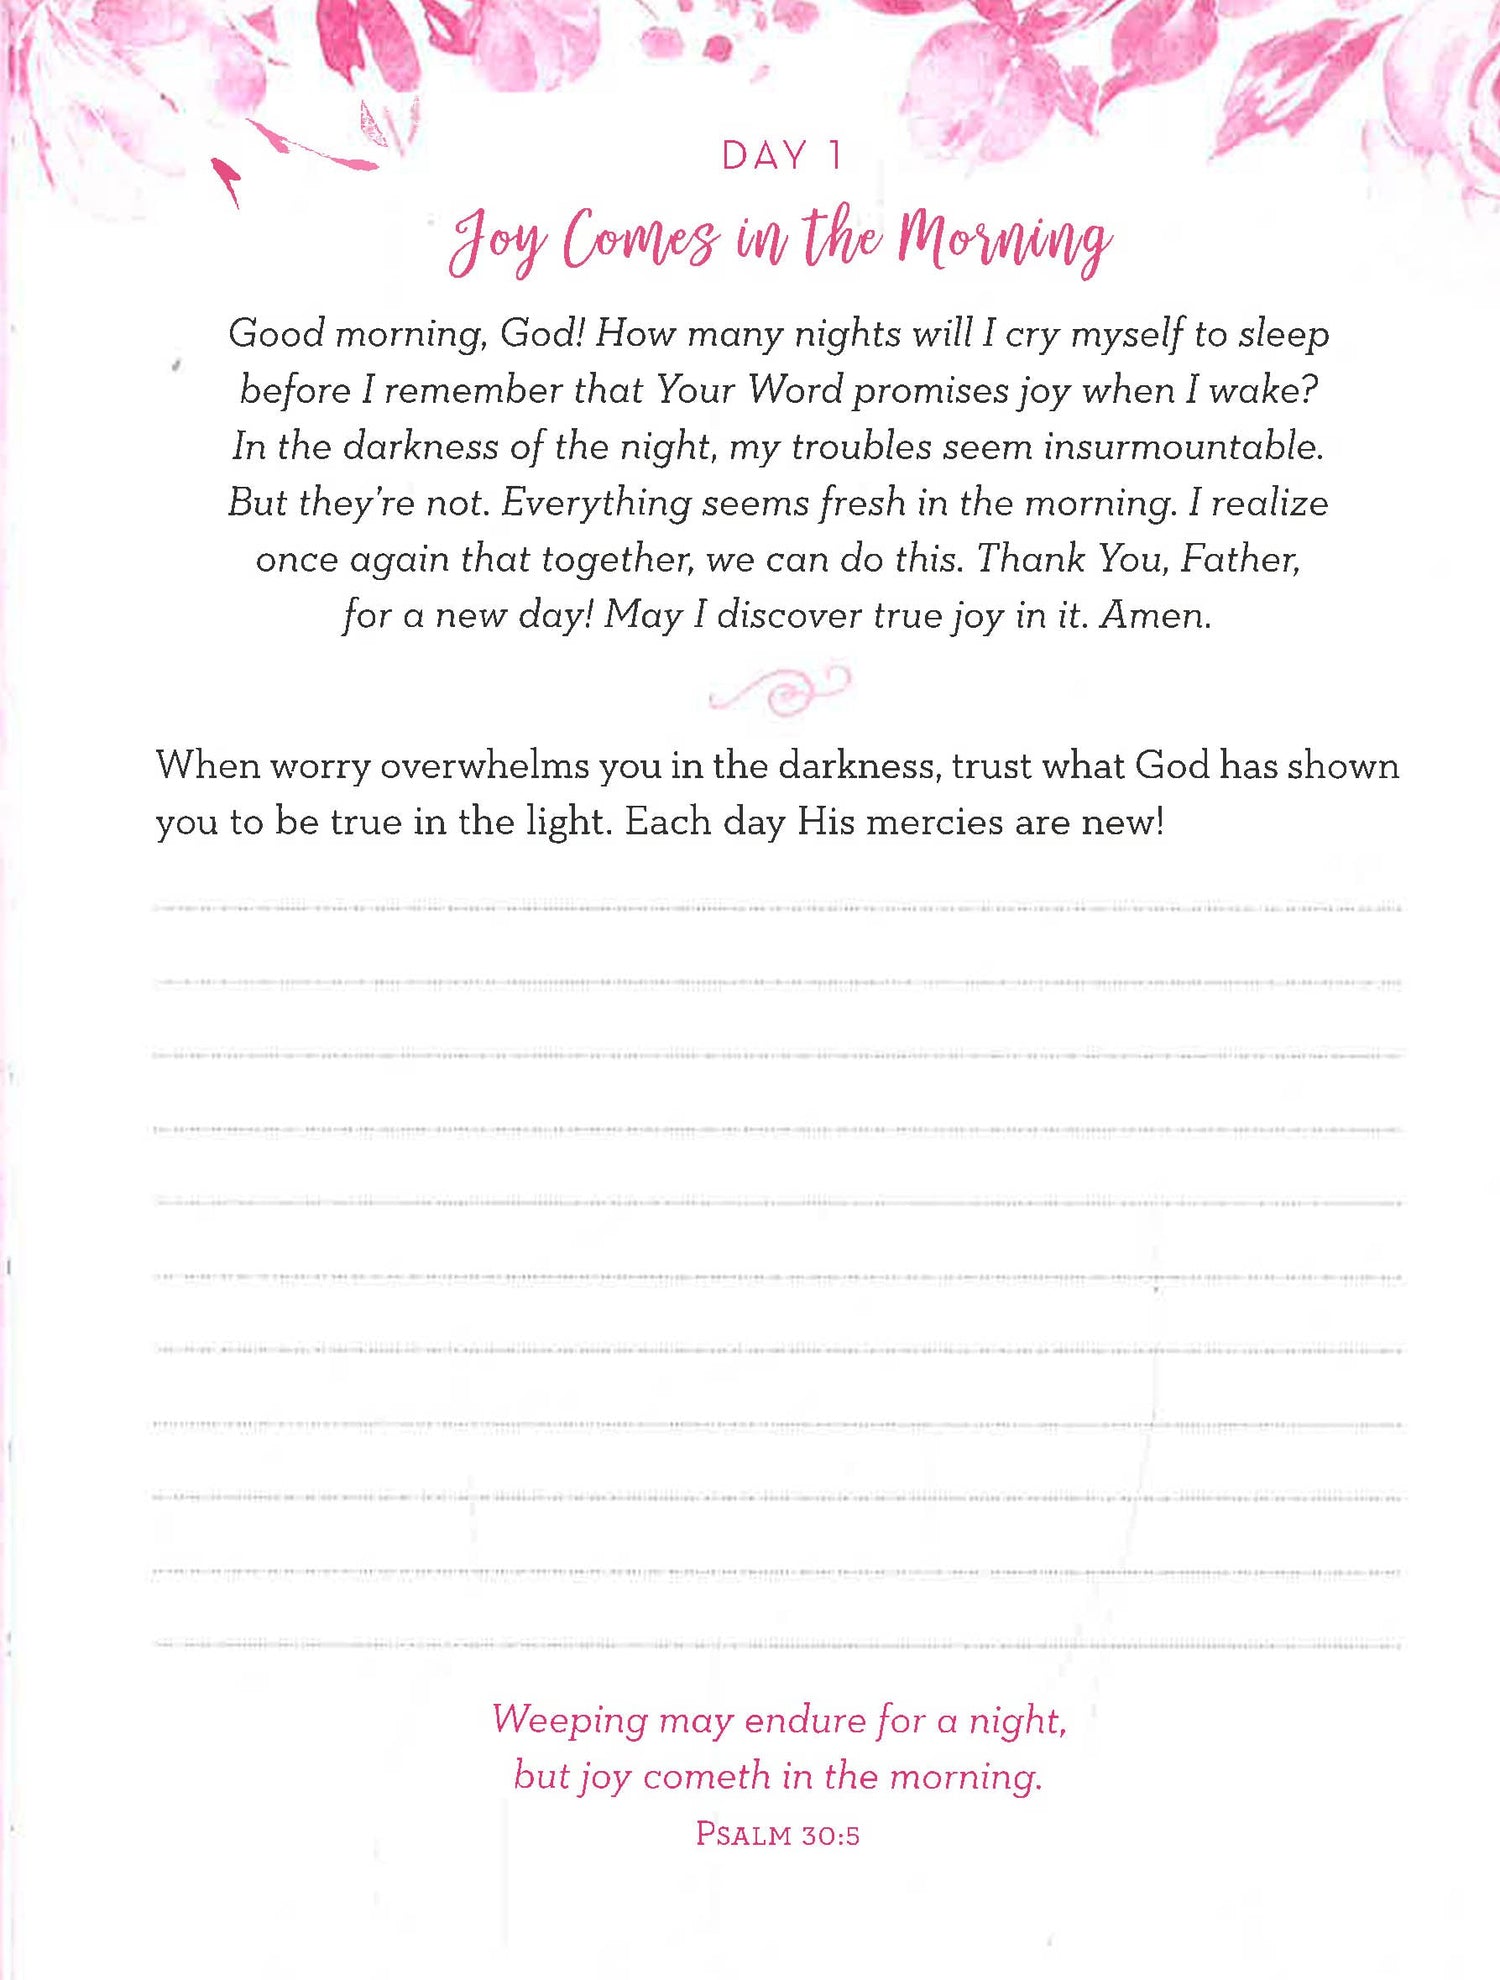 DAY 1
Joy Comes in the Morning
Good morning, God! How many nights will I cry myself to sleep
before I remember that Your Word promises joy when I wake?
In the darkness of the night, my troubles seem insurmountable.
But they're not. Everything seems fresh in the morning. I realize
once again that together, we can do this. Thank You, Father,
for a new day! May I discover true joy in it. Amen.
When worry overwhelms you in the darkness, trust what God has shown
you to be true in the light. Each day His mercies are new!
Weeping may endure for a night,
but joy cometh in the morning.
PSALM 30:5